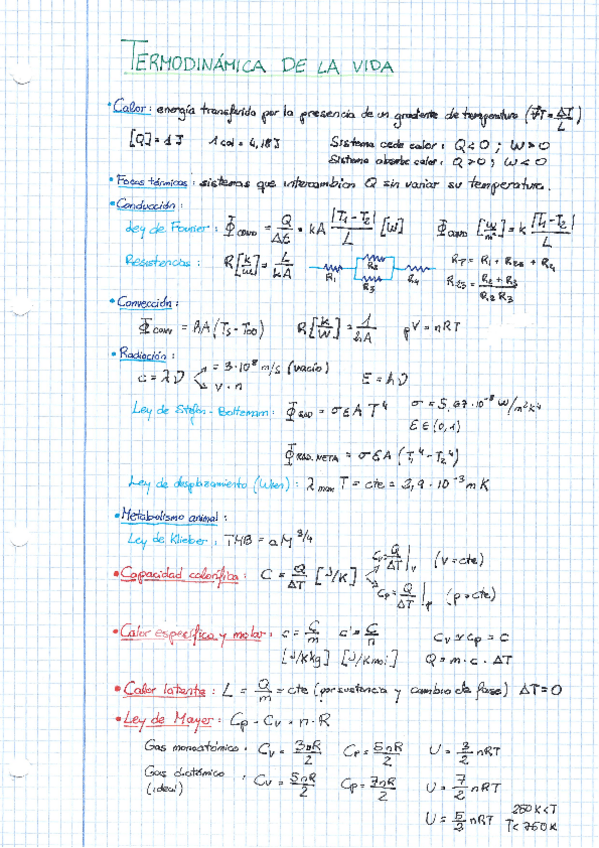 TERMODINÁMICA DE LA VIDA
• Calor: energía transferida por la presencia de un gradiente de temperatura (∇T = ΔT/L)
[Q] = 1 J 1 cal = 4,18 J Sistema cede calor: Q < 0 ; W > 0
Sistema absorbe calor: Q > 0 ; W < 0
• Focos térmicos: sistemas que intercambian Q sin variar su temperatura.
• Conducción:
Ley de Fourier: Φ_COND = Q/Δt = kA |T₁-T₂|/L [W] Φ_COND [W/m²] = k |T₁-T₂|/L
Resistencias: R [K/W] = L/kA R₁ R₂ R₃ R₄ R_T = R₁ + R₂₃ + R₄
R₂₃ = R₂ + R₃/R₂R₃
• Convección:
Φ_CONV = hA (T_S - T∞) R [K/W] = 1/hA pV = nRT
• Radiación:
c = λν = 3·10⁸ m/s (vacío) E = hν
v·n
Ley de Stefan-Boltzmann: Φ_RAD = σεAT⁴ σ = 5,67·10⁻⁸ W/m²K⁴
ε ∈ (0,1)
Φ_RAD. NETA = σεA (T₁⁴ - T₂⁴)
Ley de desplazamiento (Wien): λ_max T = cte = 2,9·10⁻³ m K
• Metabolismo animal:
Ley de Klieber: TMB = aM^3/4
• Capacidad calorífica: C = Q/ΔT [J/K] Cv = Q/ΔT|v (V = cte)
Cp = Q/ΔT|p (p = cte)
• Calor específico y molar: c = C/m c' = C/n Cv ≃ Cp = C
[J/K kg] [J/K mol] Q = m·c·ΔT
• Calor latente: L = Q/m = cte (por sustancia y cambio de fase) ΔT = 0
• Ley de Mayer: Cp - Cv = n·R
Gas monoatómico: Cv = 3nR/2 Cp = 5nR/2 U = 3/2 nRT
Gas diatómico (ideal): Cv = 5nR/2 Cp = 7nR/2 U = 7/2 nRT
U = 5/2 nRT 250 K < T
T < 750 K